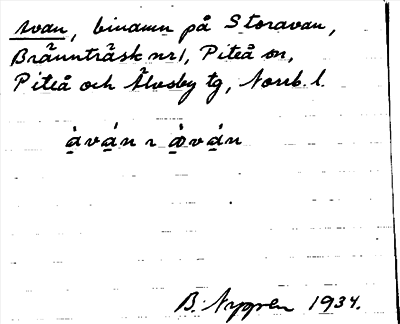 Avan, binamn på Storavan,
Brännträsk nr 1, Piteå sn,
Piteå och Älvsby tg, Norrb. l.
ȧ̱vá̱n ~ å̱̇vá̱n
B. Nygren 1934.